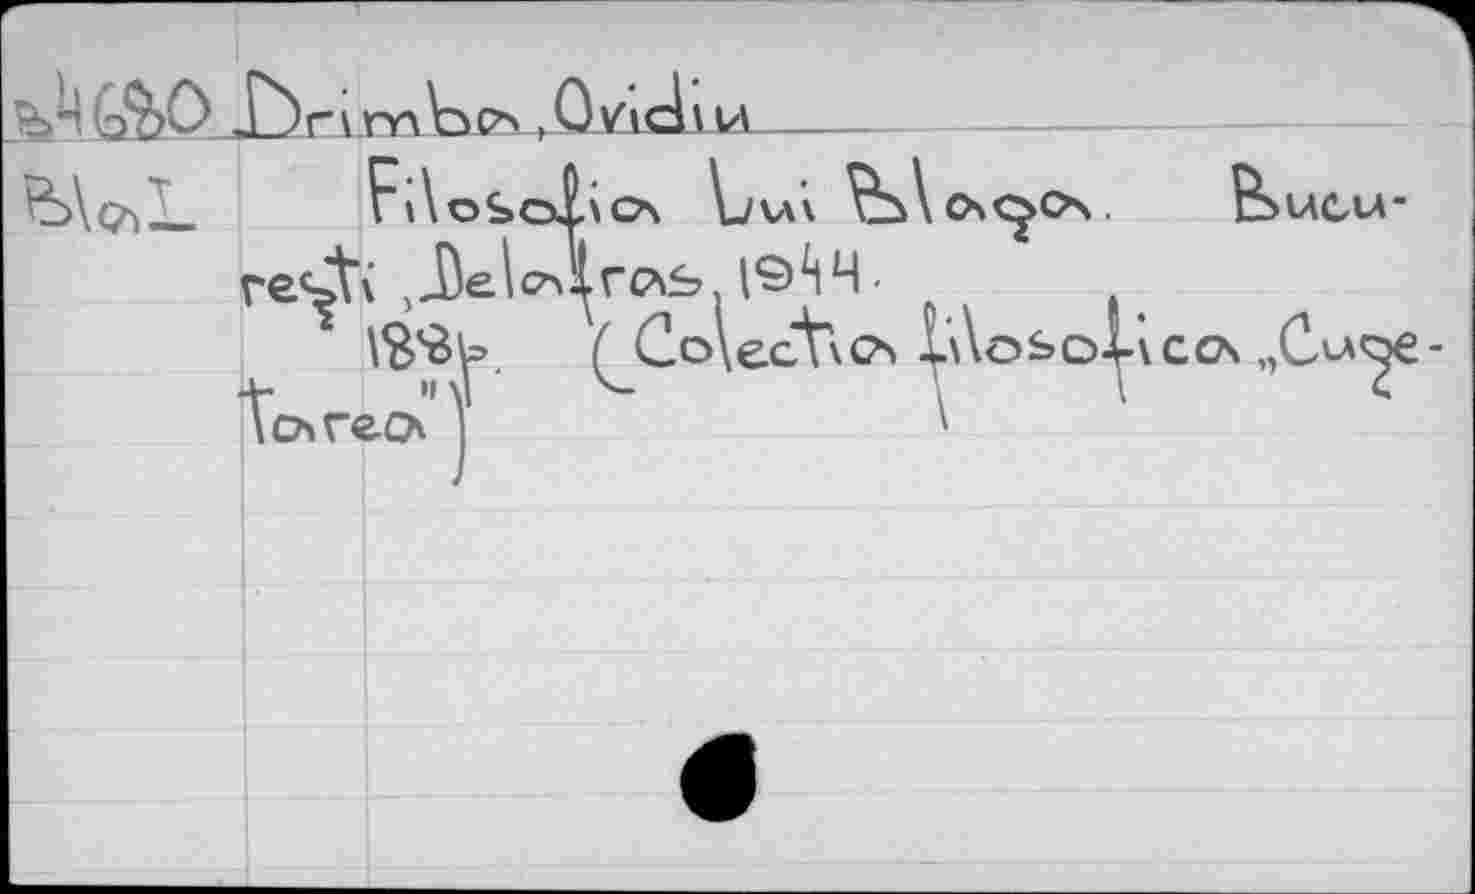 B4680 Drimba, Ovidiu
BlaI Filosofia lui Blaga. Bucu-
rești, Delafras, 1944.
188p. (Colecția filosofica „Cuge-
tarea")